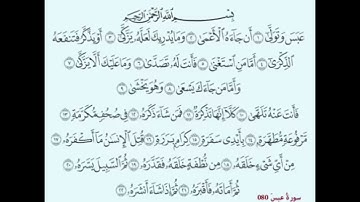 بِسْمِ اللَّهِ الرَّحْمَٰنِ الرَّحِيمِ
عَبَسَ وَتَوَلَّىٰ ۝١ أَن جَاءَهُ الْأَعْمَىٰ ۝٢ وَمَا يُدْرِيكَ لَعَلَّهُ يَزَّكَّىٰ ۝٣ أَوْ يَذَّكَّرُ فَتَنفَعَهُ
الذِّكْرَىٰ ۝٤ أَمَّا مَنِ اسْتَغْنَىٰ ۝٥ فَأَنتَ لَهُ تَصَدَّىٰ ۝٦ وَمَا عَلَيْكَ أَلَّا يَزَّكَّىٰ ۝٧
وَأَمَّا مَن جَاءَكَ يَسْعَىٰ ۝٨ وَهُوَ يَخْشَىٰ ۝٩
فَأَنتَ عَنْهُ تَلَهَّىٰ ۝١٠ كَلَّا إِنَّهَا تَذْكِرَةٌ ۝١١ فَمَن شَاءَ ذَكَرَهُ ۝١٢ فِي صُحُفٍ مُّكَرَّمَةٍ ۝١٣
مَّرْفُوعَةٍ مُّطَهَّرَةٍ ۝١٤ بِأَيْدِي سَفَرَةٍ ۝١٥ كِرَامٍ بَرَرَةٍ ۝١٦ قُتِلَ الْإِنسَانُ مَا أَكْفَرَهُ ۝١٧
مِنْ أَيِّ شَيْءٍ خَلَقَهُ ۝١٨ مِن نُّطْفَةٍ خَلَقَهُ فَقَدَّرَهُ ۝١٩ ثُمَّ السَّبِيلَ يَسَّرَهُ ۝٢٠
ثُمَّ أَمَاتَهُ فَأَقْبَرَهُ ۝٢١ ثُمَّ إِذَا شَاءَ أَنشَرَهُ ۝٢٢
سورة عبس 080